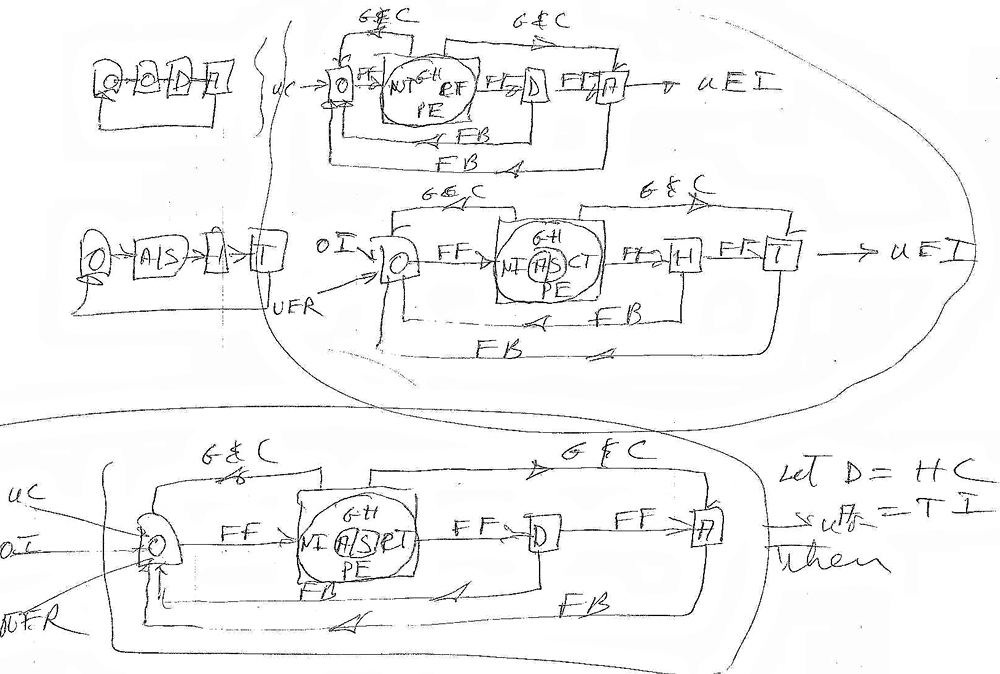 G & C G & C
O O D A
UC O FF GH FF D FF A UEI
PE
FB
FB
G & C G & C
O A/S T
OI O FF GH FF H FF T UEI
NI A/S CT
PE
UER
FB
FB
G & C G & C
UC
OI O FF GH FF D FF A
NI A/S RT
PE
FB
FB
Let D = H C
= T I
then